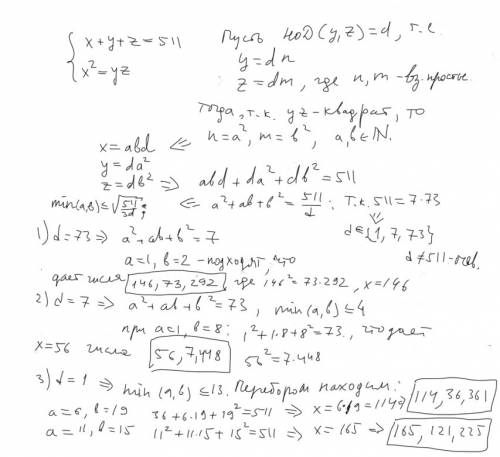 x+y+z=511
x²=yz
Пусть НОД(y,z)=d, т.е.
y=dn
z=dm, где n,m-вз. простые
тогда, т.к. yz-квадрат, то
n=a², m=b², a,b∈ℕ.
x=abd ⇐
y=da²
z=db² ⇒ abd+da²+db²=511
min(a,b)≤√(511/3d); ⇐ a²+ab+b²=511/d; Т.к. 511=7·73
⇓
d∈{1,7,73}
d≠511-очев.
1) d=73 ⇒ a²+ab+b²=7
a=1, b=2 - подходят, что
дает числа 146,73,292, где 146²=73·292, x=146
2) d=7 ⇒ a²+ab+b²=73, min(a,b)≤4
при a=1, b=8: 1²+1·8+8²=73, что дает
x=56 числа 56,7,448 56²=7·448
3) d=1 ⇒ min(a,b)≤13. Перебором находим:
a=6, b=19 36+6·19+19²=511 ⇒ x=6·19=114 ⇒ 114,36,361
a=11, b=15 11²+11·15+15²=511 ⇒ x=165 ⇒ 165,121,225